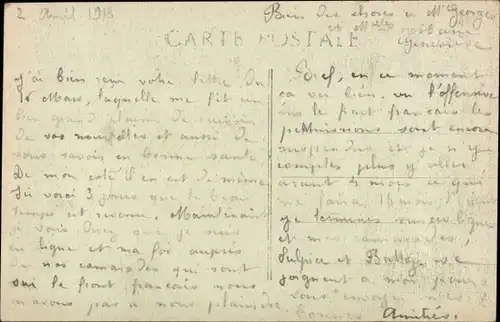 2 Avril 1918
Bien des choses à Mr Georges
et Melles
Geneviève
CARTE POSTALE
J'ai bien reçu votre lettre du
16 Mars, laquelle me fit un
bien grand plaisir de recevoir
de vos nouvelles et aussi de
vous savoir en bonne santé.
De mon côté il en est de même
Ici voici 3 jours que le beau
temps est revenu. Maintenant
je vous dirai que je suis
en ligne et ma foi auprès
de nos camarades qui sont
sur le front français nous
n'avons pas à nous plaindre.
Bref, en ce moment
ça va bien, vu l'offensive
sur le front français les
permissions sont encore
suspendues et je n'y
comptes plus y aller
avant 2 mois ce qui
me fera 18 mois.
Je termines
et mes camarades,
Sulpice et se
joignent à moi pour
vous envoyer nos
Amitiés.